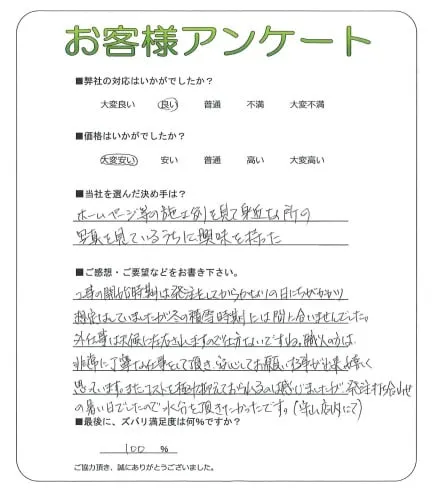 お客様アンケート
■弊社の対応はいかがでしたか？
大変良い 良い 普通 不満 大変不満
■価格はいかがでしたか？
大変安い 安い 普通 高い 大変高い
■当社を選んだ決め手は？
ホームページ等の施工例を見て身近な所の
写真を見ているうちに興味を持った
■ご感想・ご要望などをお書き下さい。
工事の開始時期は発注をしてからかなりの日にちがかかり
想定はしていましたが冬の積雪時期には間に合いませんでした。
外仕事は天候に左右されますので仕方ないですね。職人の方は
非常に丁寧な仕事をして頂き、安心してお願いする事が出来、嬉しく
思っています。またコストを極力抑えておられるのは感じましたが 発注打ち合わせ
の暑い日でしたので水分を頂きたかったです。(店内にて)
■最後に、ズバリ満足度は何％ですか？
100 %
ご協力頂き、誠にありがとうございました。